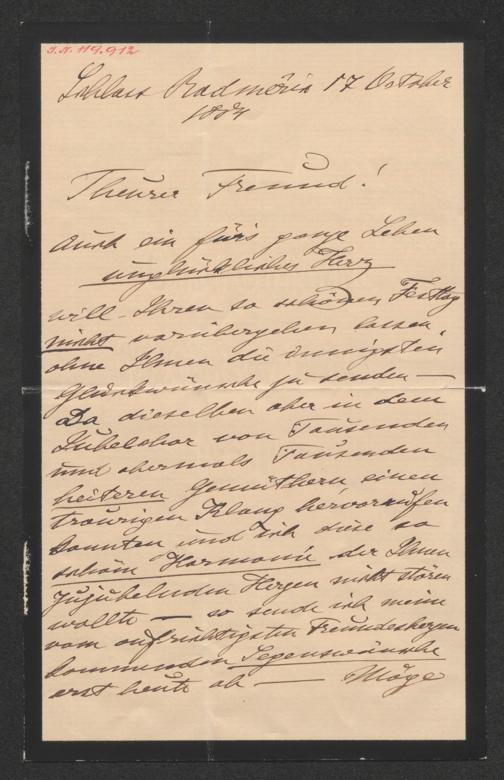 I.N. 119.912
Schloss Radmériz 17 October
1884
Theurer Freund!
Auch ein für's ganze Leben
unglückliches Herz
will Ihren so schönen Festtag
nicht vorübergehen lassen,
ohne Ihnen die innigsten
Glückwünsche zu senden —
Da dieselben aber in dem
Jubelchor von Tausenden
und abermals Tausenden
heiteren Gemüthern, einen
traurigen Klang hervorrufen
konnten und ich diese so
schöne Harmonie der Ihnen
zujubelnden Herzen nicht stören
wollte — so sende ich meine
vom aufrichtigsten Freundesherzen
kommenden Segenswünsche
erst heute ab — Möge